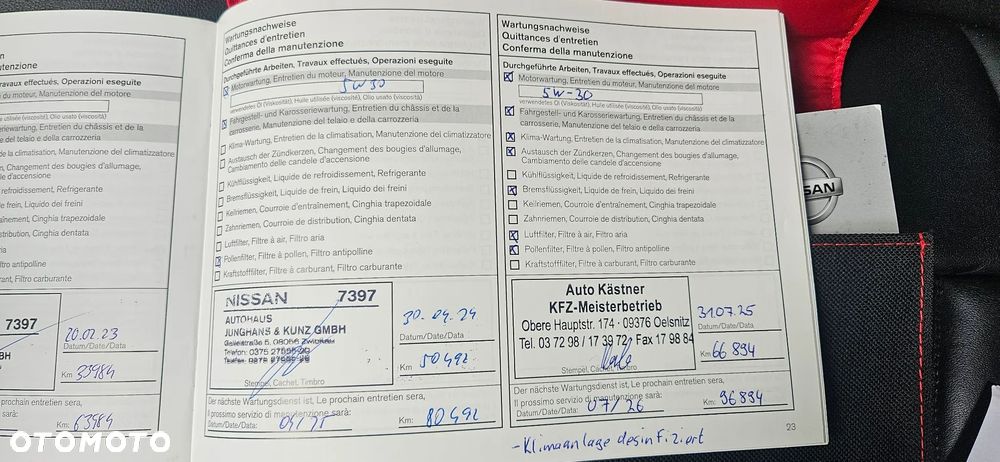 en
ravaux effectués, Operazioni eseguite
du moteur, Manutenzione del motore
lisée (viscosité), Olio usato (viscosità)
seriewartung, Entretien du châssis et de la
e del telaio e della carrozzeria
de la climatisation, Manutenzione del climatizzatore
n, Changement des bougies d'allumage,
d'accensione
de refroidissement, Refrigerante
de frein, Liquido dei freini
traînement, Cinghia trapezoidale
distribution, Cinghia dentata
aria
iltro antipolline
ant, Filtro carburante
7397
BH
20.02.23
Datum/Date/Data
Km 33984
prochain entretien sera,
sarà:
Km: 63984
Wartungsnachweise
Quittances d'entretien
Conferma della manutenzione
Durchgeführte Arbeiten, Travaux effectués, Operazioni eseguite
Motorwartung, Entretien du moteur, Manutenzione del motore
5W30
verwendetes Öl (Viskosität), Huile utilisée (viscosité), Olio usato (viscosità)
Fahrgestell- und Karosseriewartung, Entretien du châssis et de la
carrosserie, Manutenzione del telaio e della carrozzeria
Klima-Wartung, Entretien de la climatisation, Manutenzione del climatizzatore
Austausch der Zündkerzen, Changement des bougies d'allumage,
Cambiamento delle candele d'accensione
Kühlflüssigkeit, Liquide de refroidissement, Refrigerante
Bremsflüssigkeit, Liquide de frein, Liquido dei freini
Keilriemen, Courroie d'entraînement, Cinghia trapezoidale
Zahnriemen, Courroie de distribution, Cinghia dentata
Luftfilter, Filtre à air, Filtro aria
Pollenfilter, Filtre à pollen, Filtro antipolline
Kraftstofffilter, Filtre à carburant, Filtro carburante
NISSAN 7397
AUTOHAUS
JUNGHANS & KUNZ GMBH
Telefon: 0375
Stempel, Cachet, Timbro
30.04.24
Datum/Date/Data
Km 50492
Der nächste Wartungsdienst ist, Le prochain entretien sera,
Il prossimo servizio di manutenzione sarà:
Datum/Date/Data: 04/25 Km: 80492
Wartungsnachweise
Quittances d'entretien
Conferma della manutenzione
Durchgeführte Arbeiten, Travaux effectués, Operazioni eseguite
Motorwartung, Entretien du moteur, Manutenzione del motore
5W-30
verwendetes Öl (Viskosität), Huile utilisée (viscosité), Olio usato (viscosità)
Fahrgestell- und Karosseriewartung, Entretien du châssis et de la
carrosserie, Manutenzione del telaio e della carrozzeria
Klima-Wartung, Entretien de la climatisation, Manutenzione del climatizzatore
Austausch der Zündkerzen, Changement des bougies d'allumage,
Cambiamento delle candele d'accensione
Kühlflüssigkeit, Liquide de refroidissement, Refrigerante
Bremsflüssigkeit, Liquide de frein, Liquido dei freini
Keilriemen, Courroie d'entraînement, Cinghia trapezoidale
Zahnriemen, Courroie de distribution, Cinghia dentata
Luftfilter, Filtre à air, Filtro aria
Pollenfilter, Filtre à pollen, Filtro antipolline
Kraftstofffilter, Filtre à carburant, Filtro carburante
Auto Kästner
KFZ-Meisterbetrieb
Obere Hauptstr. 174 · 09376 Oelsnitz
Tel. 03 72 98 / 17 39 72 · Fax 17 98 84
Stempel, Cachet, Timbro
31.07.25
Datum/Date/Data
Km 66894
Der nächste Wartungsdienst ist, Le prochain entretien sera,
Il prossimo servizio di manutenzione sarà:
Datum/Date/Data: 07/26 Km: 96894
23
- Klimaanlage desinfiziert
SAN
OTOMOTO